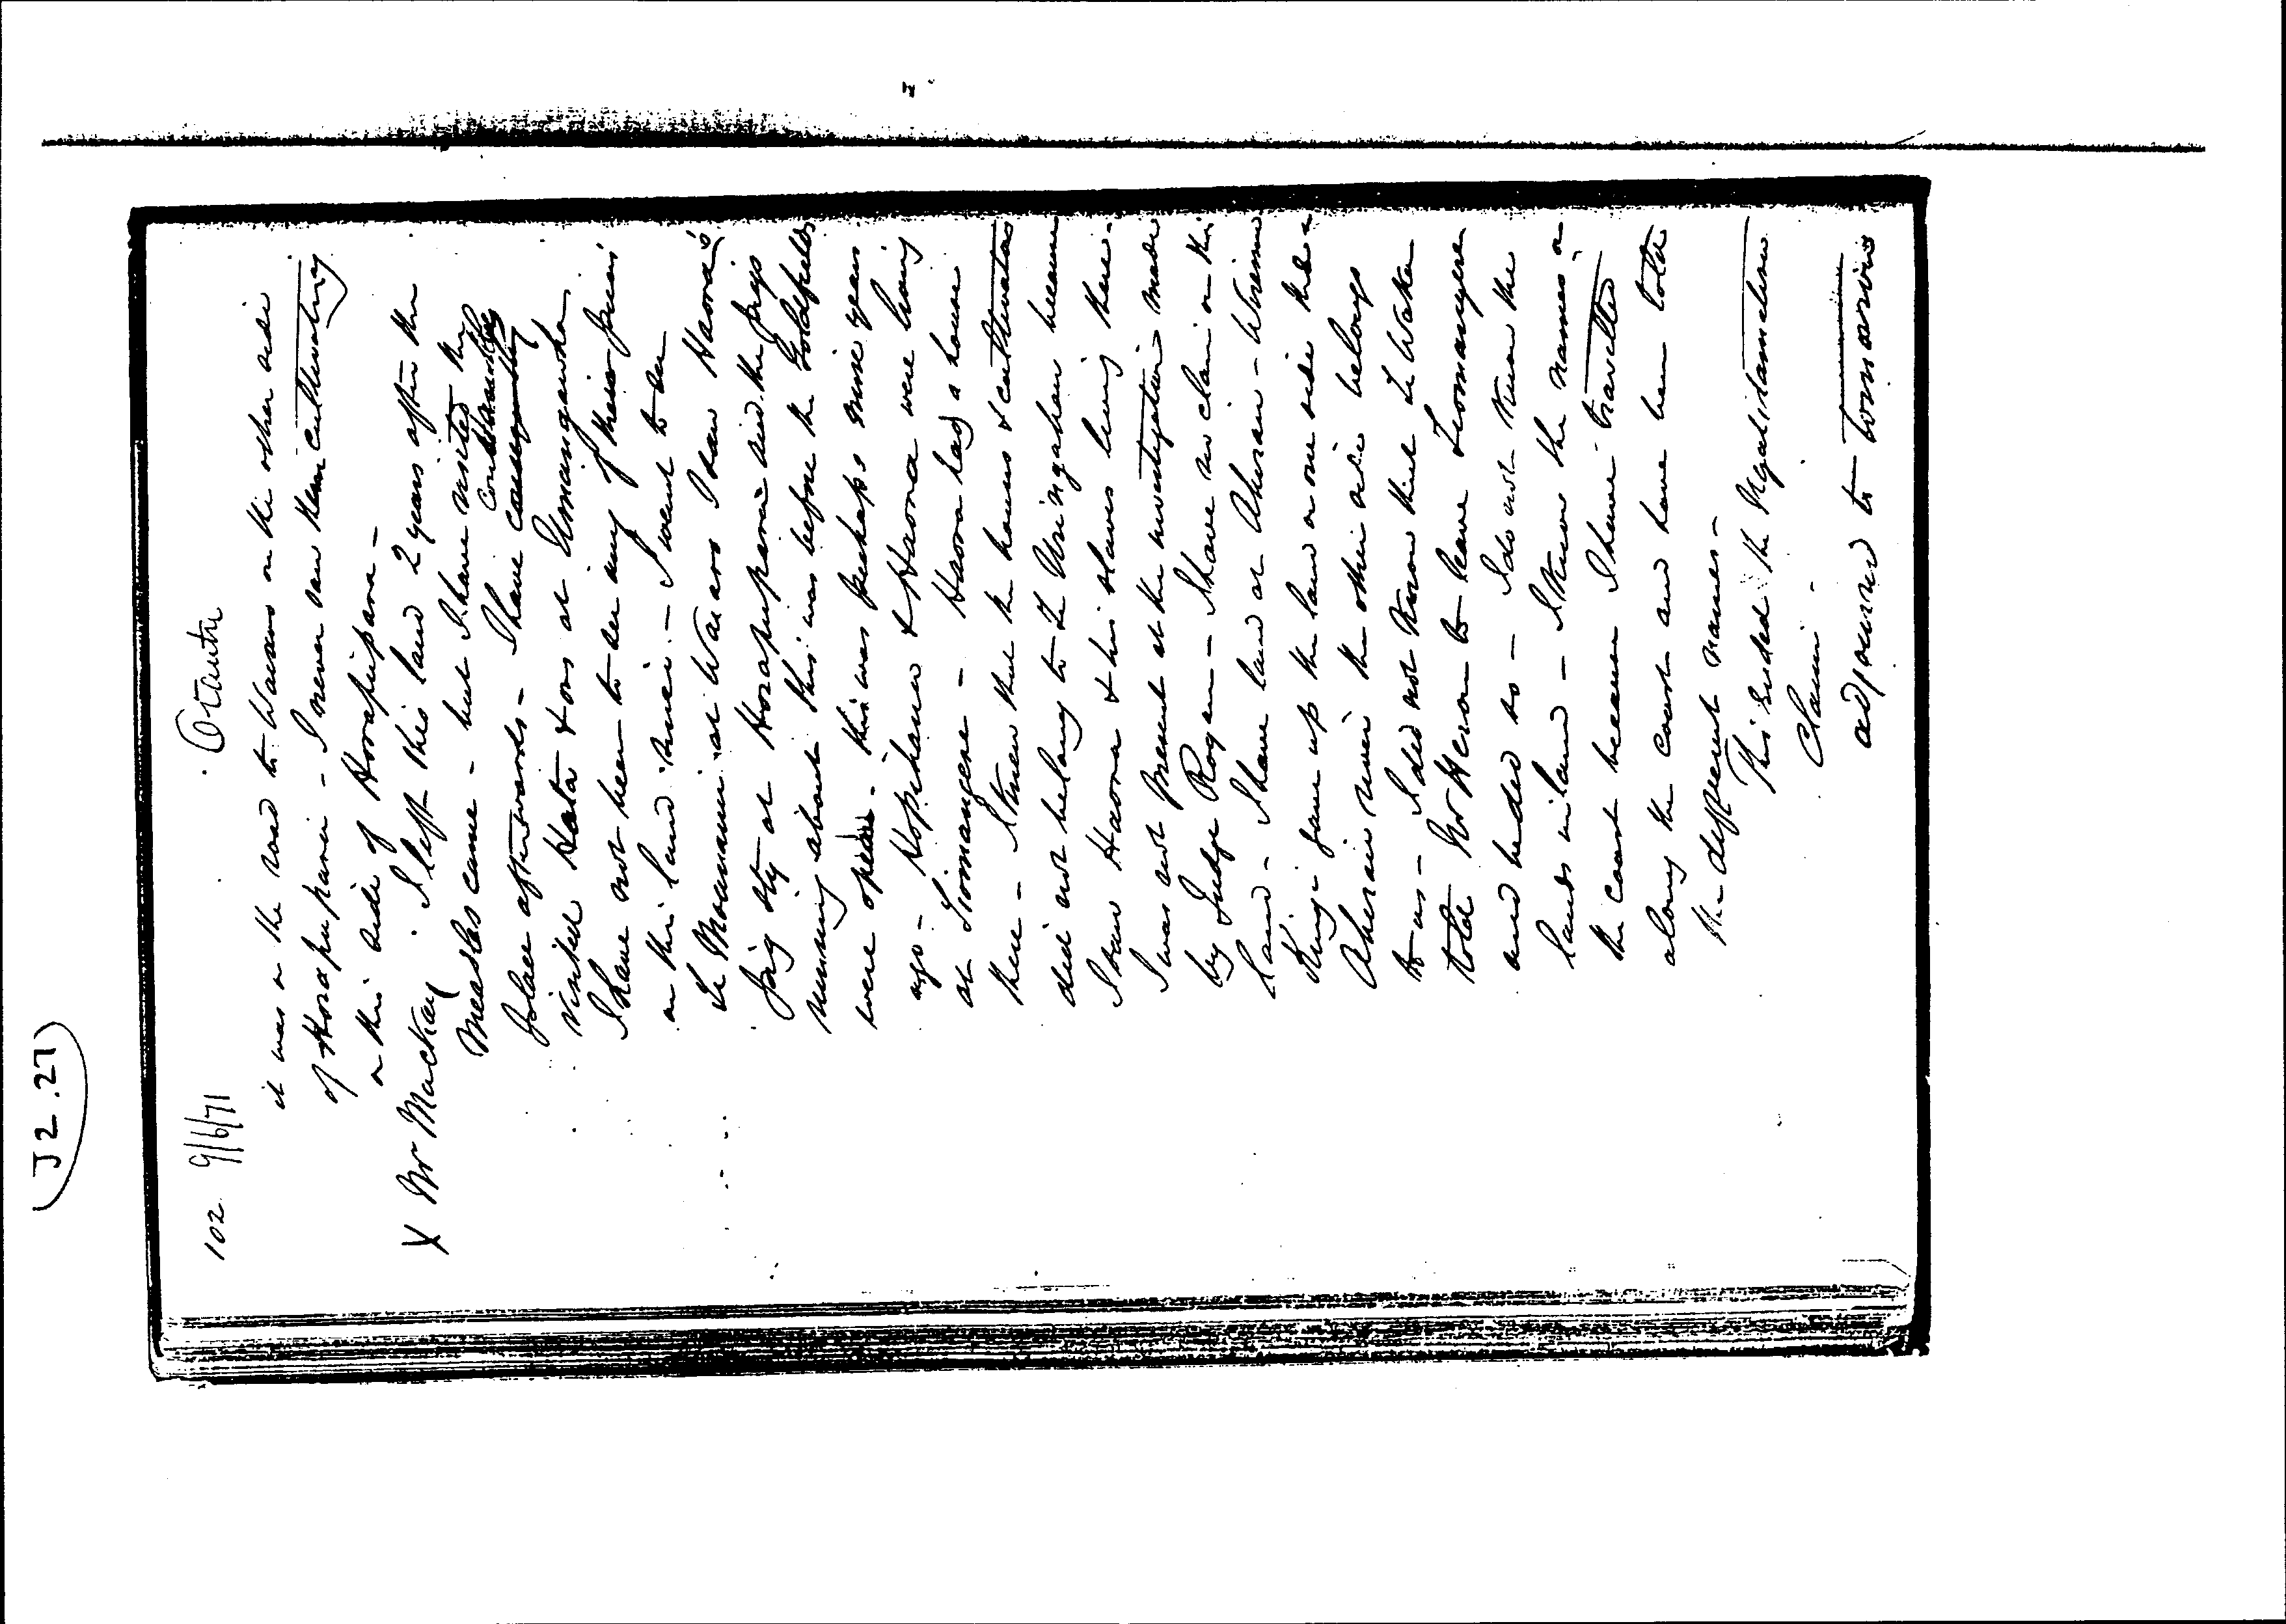 J2.27
102 9/6/71 Otautu
it was on the road to Waiaro on the other side
of Horopupārāri - I never saw them cultivating
on this side of
X Mr Mackay. I left this land 2 years after the
Measles came - but I have visited the
place afterwards - I have constantly
visited Hata & ors at Umangawha
I have not been to see any of
on this land since - I went to see
Te Moananui at Waiaro I saw Haora's
pig sty at and the pigs
running about this was before the Goldfields
were open - this was perhaps nine years
ago - & Haora were living
at Tiomangere - Haora had a house
there - I knew that the houses & cultivations
did not belong to Te Uringahau because
I saw Haora & his slaves living there -
I was not present at the investigation made
by Judge Rogan - I have no claim on this
land - I have land at Aherain -
Kingi gave up the land on one side the
river the other side belongs
to us - I did not know that Te Waka
told Mr Heron to leave Tiomangere
and he did so - I do not know the
lands inland - I know the names on
the coast because I have travelled
along the coast and have been told
the different names -
This ended the Ngatitamatera
Claim -
adjourned to tomorrow